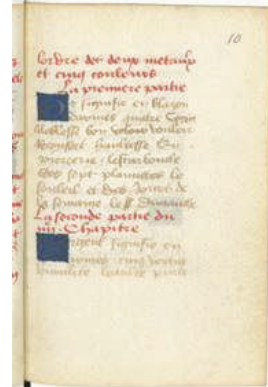 10
lordre des deux metaux
et cinq couleurs
La premiere partie
Or signifie en blazon
Darmes quatre
Noblesse bon voloir
haultesse En
pierrerie lescarboucle
Des sept planettes le
souleil et Des Jours de
la sepmaine le Dimanche
La seconde partie du
iiii Chapitre
Argent signifie en
armes cinq vertus
humilite